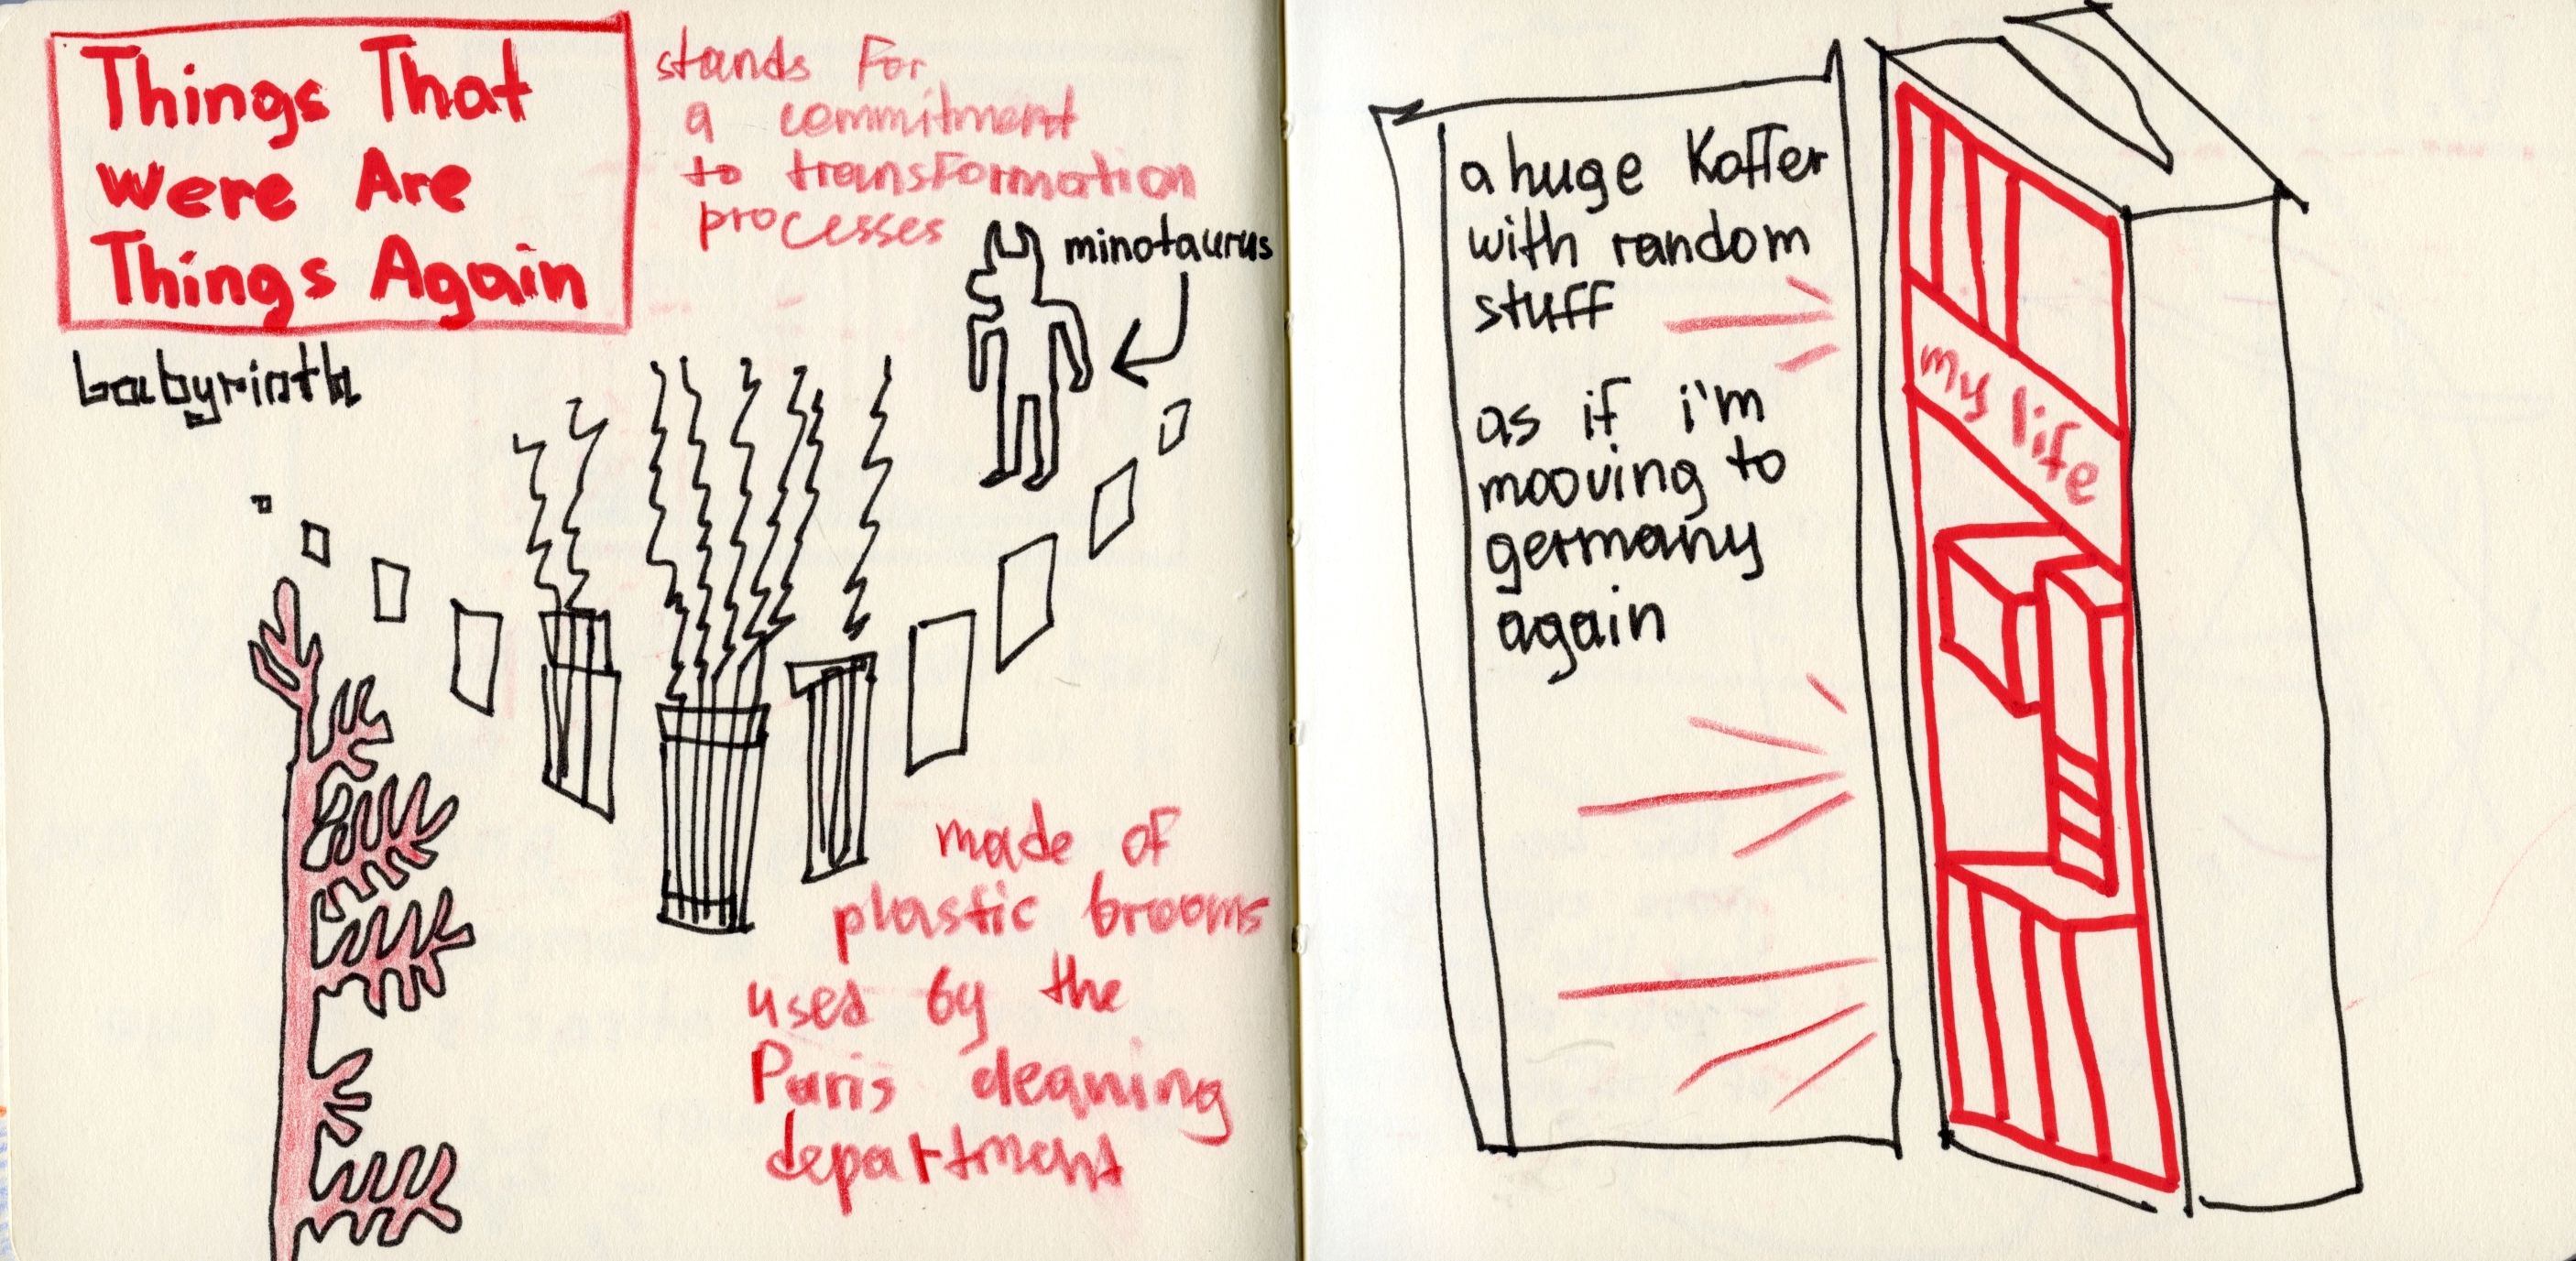 Things That
Were Are
Things Again
stands For
a commitment
to transFormation
processes
minotaurus
Labyrinth
made of
plastic brooms
used by the
Paris cleaning
department
a huge Koffer
with random
stuff
as if i'm
mooving to
germany
again
my life